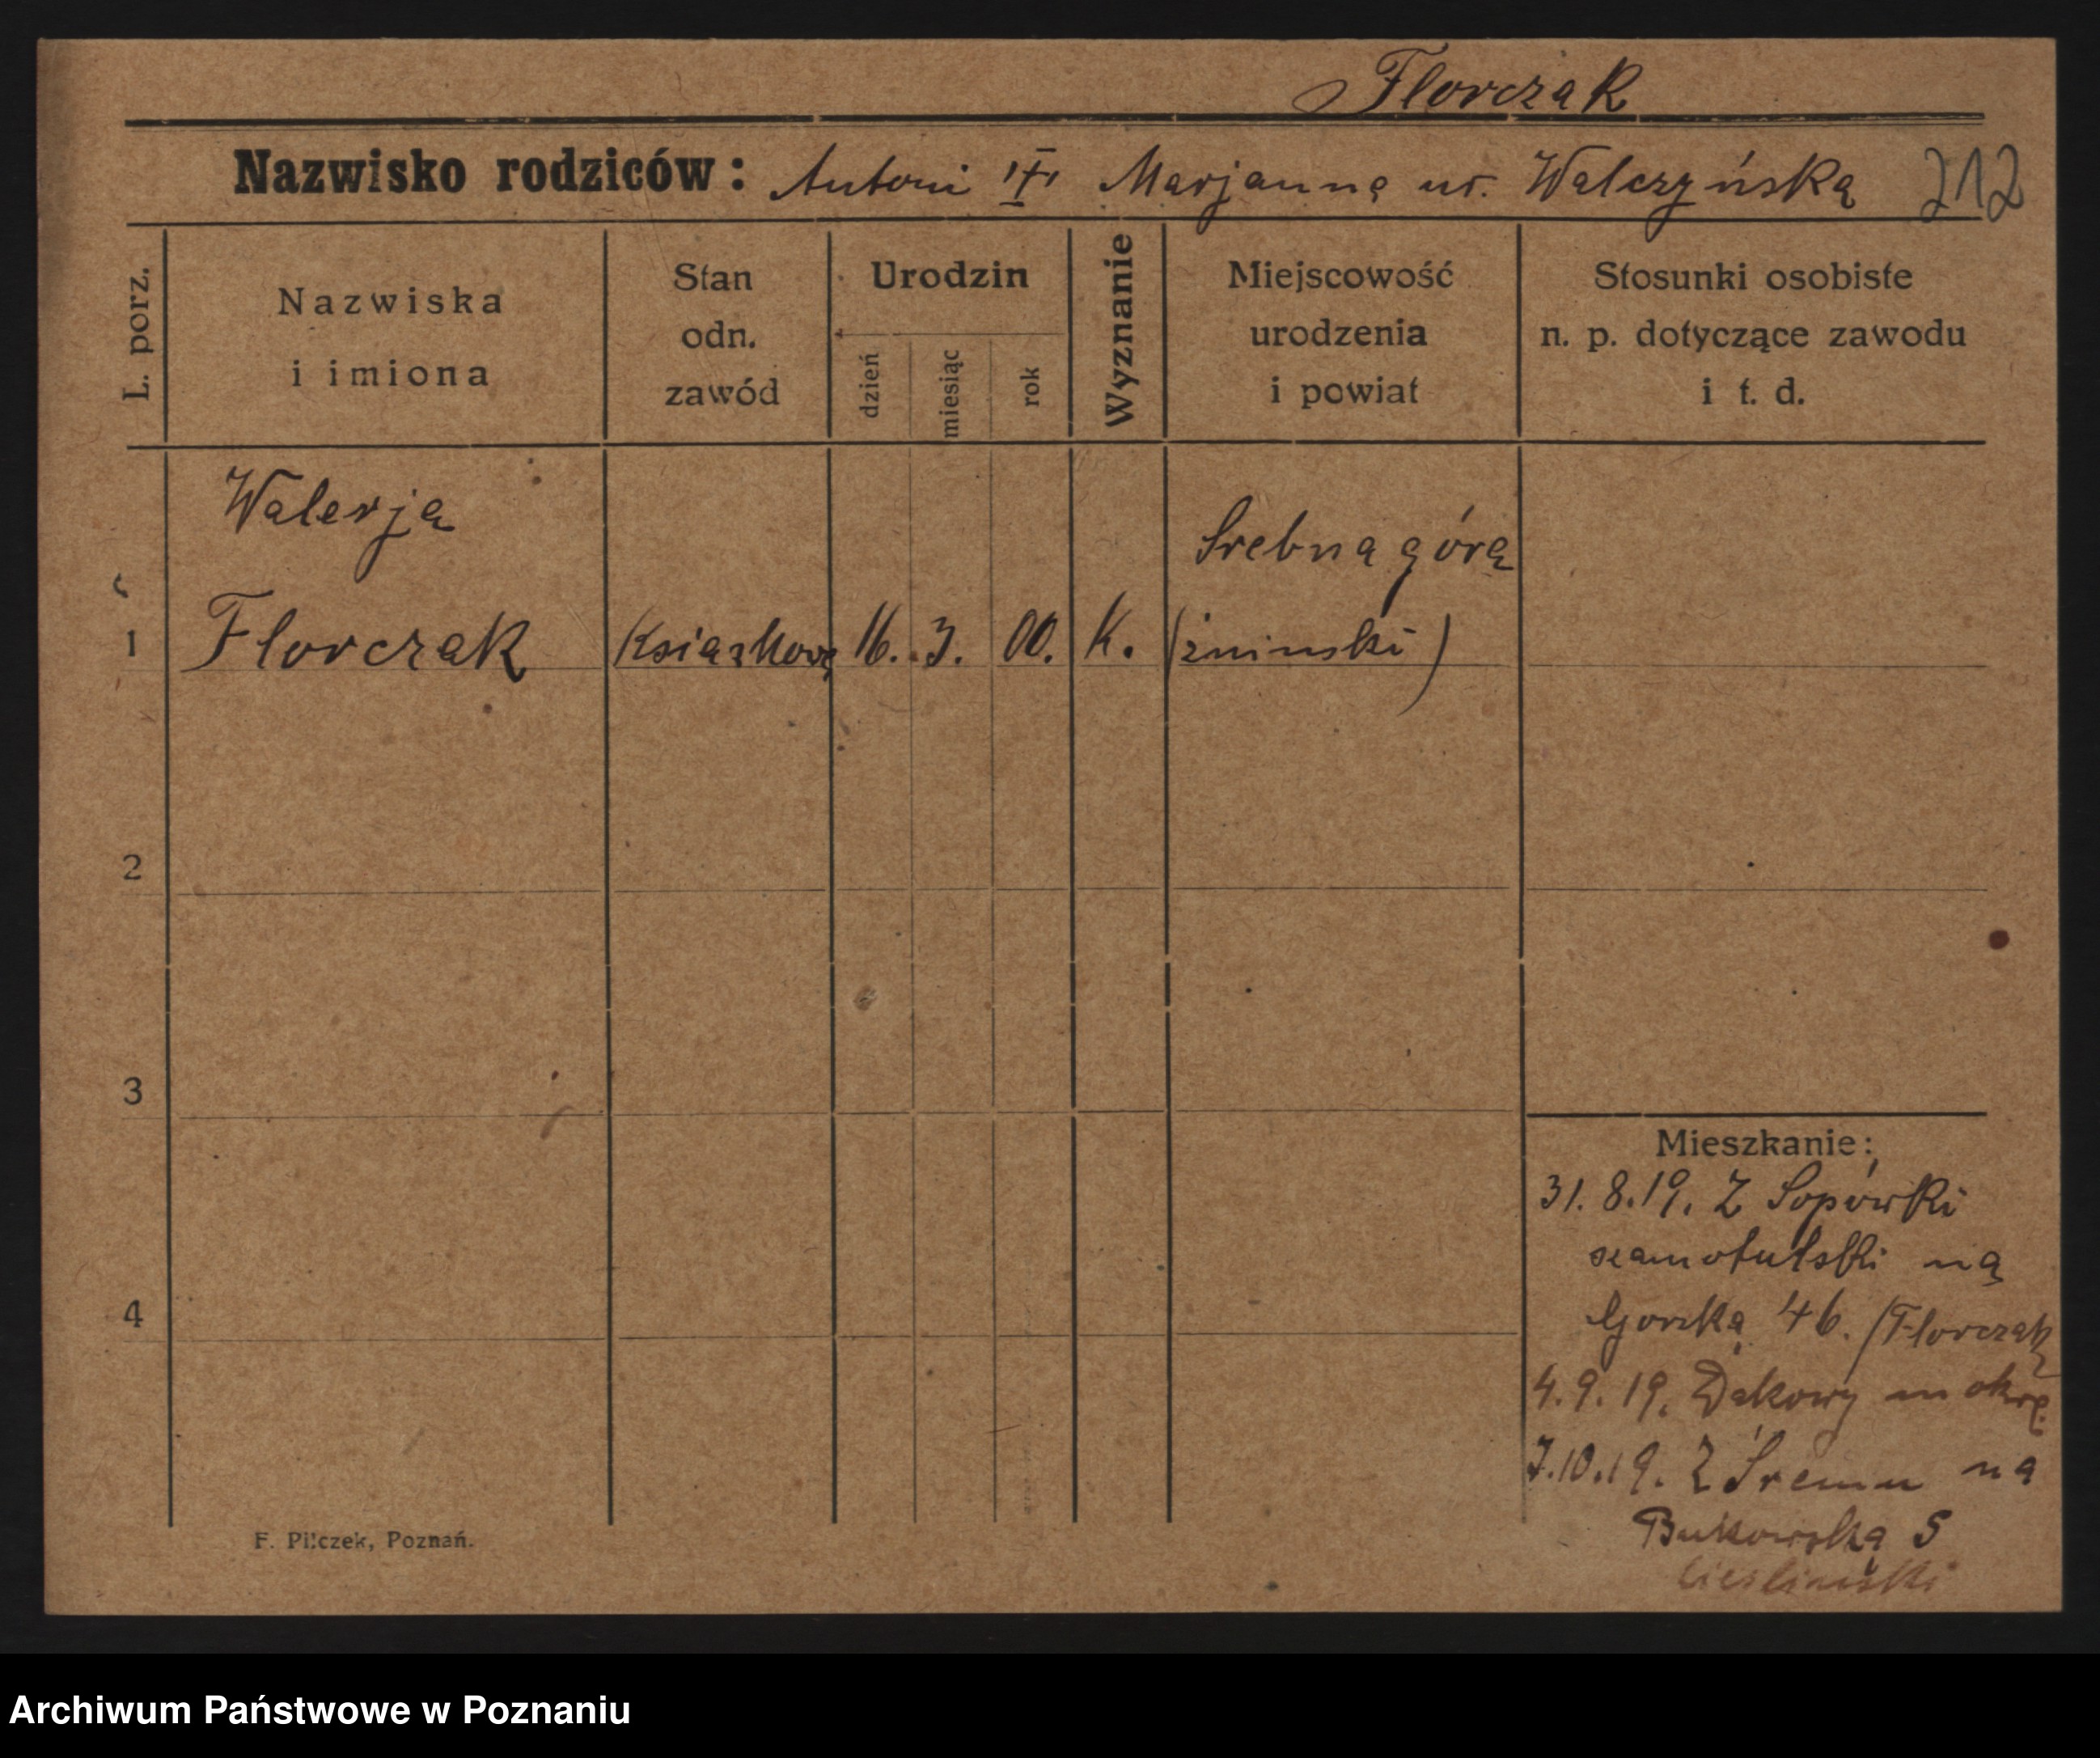 Florczak
Nazwisko rodziców: Antoni i Marjanna ur. Walczyńska 212
L. porz.
Nazwiska
i imiona
Stan
odn.
zawód
Urodzin
dzień
miesiąc
rok
Wyznanie
Miejscowość
urodzenia
i powiat
Stosunki osobiste
n. p. dotyczące zawodu
i t. d.
Walerja
Srebna góra
1 Florczak 16. 3. 00. K. (żninski)
2
3
Mieszkanie:
31.8.19. Z Sopówki
szamotulski na
4
Gorska 46. (Florczak
4.9.19. Dakowy m okrę.
7.10.19. Z Śremu na
Bukowska 5
Cieslinski
F. Pilczek, Poznań.
Archiwum Państwowe w Poznaniu